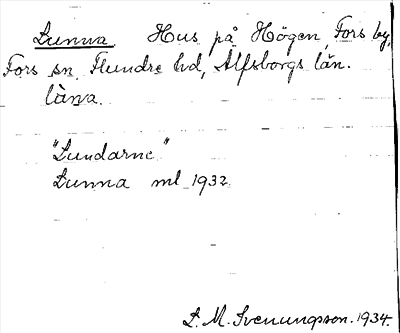 Lunna. Hus på Högen, Fors by,
Fors sn, Flundre hd, Älfsborgs län.
lùna.
"Lundarne"
Lunna ml 1932.
L. M. Svenungsson. 1934.